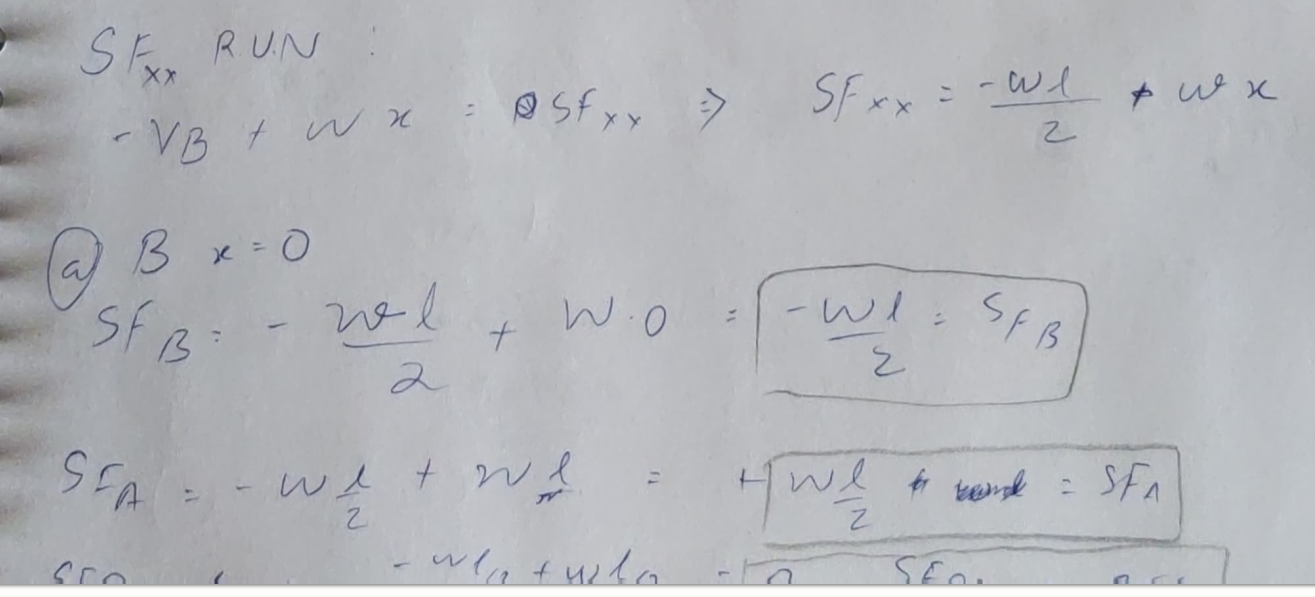 SFxx RUN :
- VB + w x = SFxx ⇒ SFxx = -wl/2 + w x
@ B x = 0
SFB = - wl/2 + w.0 = -wl/2 = SFB
SFA = - w l/2 + w l = + w l/2 = SFA